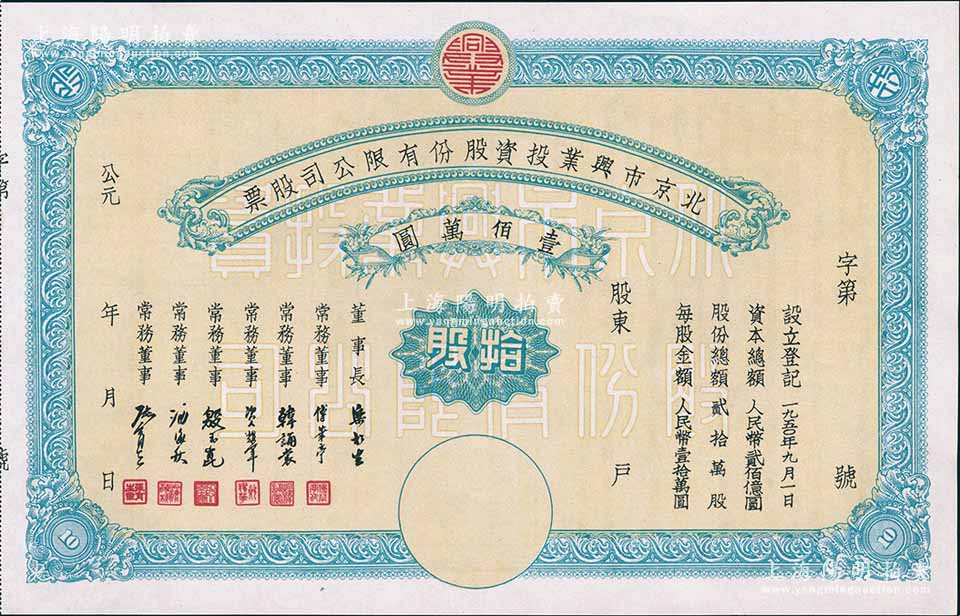 上海陽明拍賣
www.yangmingauction.com
興業
北京市興業投資股份有限公司股票
壹佰萬圓
北京市興業投資
股份有限公司
拾股
字第
號
設立登記 一九五〇年九月一日
資本總額 人民幣貳佰億圓
股份總額 貳拾萬股
每股金額 人民幣壹拾萬圓
股東
戶
董事長
常務董事 傅華亭
常務董事 韓誦裳
常務董事
常務董事 殷玉崑
常務董事
常務董事
公元
年
月
日
10
10
字第
號
上海陽明拍賣
www.yangmingauction.com
上海陽明拍賣
www.yangmingauction.com